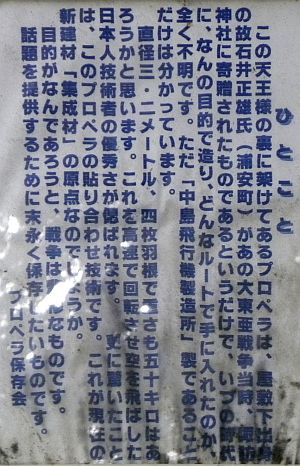 ひとこと
この天王様の裏に架けてあるプロペラは、屋敷下出身
の故石井正雄氏（浦安町）があの大東亜戦争当時、諏訪
神社に寄贈されたものであるというだけで、いつの時代
に、なんの目的で造り、どんなルートで手に入れたのか、
全く不明です。ただ「中島飛行機製造所」製であること
だけは分かっています。
直径三・二メートル、四枚羽根で重さも五十キロはあ
ろうかと思います。これを高速で回転させ空を飛ばした
日本人技術者の優秀さが偲ばれます。更に驚いたこと
は、このプロペラの貼り合わせ技術です。これが現在の
新建材「集成材」の原点なのでしょうか。
目的がなんであろうと、戦争は なものです。
話題を提供するために末永く保存したいものです。
プロペラ保存会